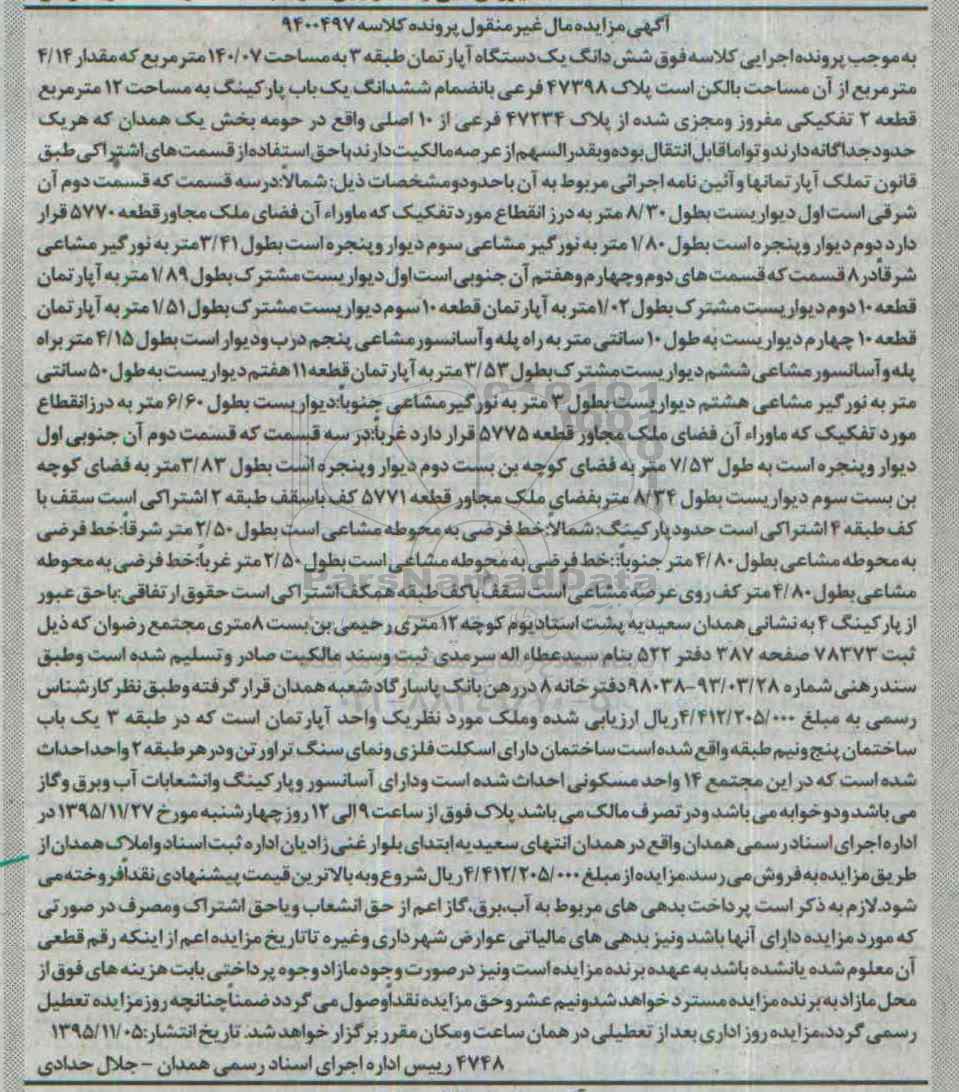 آگهی مزایده مال غیر منقول پرونده کلاسه ۹۴۰۰۴۹۷
به موجب پرونده اجرایی کلاسه فوق شش دانگ یک دستگاه آپارتمان طبقه ۳ به مساحت ۱۴۰/۰۷ متر مربع که مقدار ۴/۱۴
متر مربع از آن مساحت بالکن است پلاک ۴۷۳۹۸ فرعی بانضمام ششدانگ یک باب پارکینگ به مساحت ۱۲ متر مربع
قطعه ۲ تفکیکی مفروز ومجزی شده از پلاک ۴۷۲۳۴ فرعی از ۱۰ اصلی واقع در حومه بخش یک همدان که هریک
حدود جداگانه دارند و تواما قابل انتقال بوده وبقدر السهم از عرصه مالکیت دارند باحق استفاده از قسمت های اشتراکی طبق
قانون تملک آپارتمانها و آئین نامه اجرائی مربوط به آن باحدود ومشخصات ذیل: شمالاً:درسه قسمت که قسمت دوم آن
شرقی است اول دیواریست بطول ۸/۳۰ متر به درز انقطاع مورد تفکیک که ماوراء آن فضای ملک مجاور قطعه ۵۷۷۰ قرار
دارد دوم دیوار وپنجره است بطول ۱/۸۰ متر به نورگیر مشاعی سوم دیوار وپنجره است بطول ۳/۴۱متر به نورگیر مشاعی
شرقاًدر ۸ قسمت که قسمت های دوم وچهارم وهفتم آن جنوبی است اول دیواریست مشترک بطول ۱/۸۹ متر به آپارتمان
قطعه ۱۰ دوم دیواریست مشترک بطول ۱/۰۲متر به آپارتمان قطعه ۱۰ سوم دیواریست مشترک بطول ۱/۵۱ متر به آپارتمان
قطعه ۱۰ چهارم دیواریست به طول ۱۰ سانتی متر به راه پله و آسانسور مشاعی پنجم درب ودیوار است بطول ۴/۱۵ متر براه
پله و آسانسور مشاعی ششم دیواریست مشترک بطول ۳/۵۳ متر به آپارتمان قطعه ۱۱ هفتم دیواریست به طول ۵۰ سانتی
متر به نورگیر مشاعی هشتم دیواریست بطول ۳ متر به نورگیر مشاعی جنوباً:دیواریست بطول ۶/۶۰ متر به درز انقطاع
مورد تفکیک که ماوراء آن فضای ملک مجاور قطعه ۵۷۷۵ قرار دارد غرباً:در سه قسمت که قسمت دوم آن جنوبی اول
دیوار وپنجره است به طول ۷/۵۳ متر به فضای کوچه بن بست دوم دیوار وپنجره است بطول ۳/۸۳متر به فضای کوچه
بن بست سوم دیواریست بطول ۸/۳۴ متر بفضای ملک مجاور قطعه ۵۷۷۱ کف باسقف طبقه ۲ اشتراکی است سقف با
کف طبقه ۴ اشتراکی است حدود پارکینگ: شمالاً:خط فرضی به محوطه مشاعی است بطول ۲/۵۰ متر شرقاً:خط فرضی
به محوطه مشاعی بطول ۴/۸۰ متر جنوباً:خط فرضی به محوطه مشاعی است بطول ۲/۵۰ متر غرباً:خط فرضی به محوطه
مشاعی بطول ۴/۸۰ متر کف روی عرصه مشاعی است سقف باکف طبقه همکف اشتراکی است حقوق ارتفاقی:باحق عبور
از پارکینگ ۴ به نشانی همدان سعیدیه پشت استادیوم کوچه ۱۲ متری رحیمی بن بست ۸متری مجتمع رضوان که ذیل
ثبت ۷۸۳۷۳ صفحه ۳۸۷ دفتر ۵۲۲ بنام سیدعطاء اله سرمدی ثبت وسند مالکیت صادر وتسلیم شده است وطبق
سند رهنی شماره ۹۳/۰۳/۲۸-۹۸۰۳۸ دفترخانه ۸ در رهن بانک پاسارگاد شعبه همدان قرار گرفته وطبق نظر کارشناس
رسمی به مبلغ ۴/۴۱۲/۲۰۵/۰۰۰ریال ارزیابی شده وملک مورد نظر یک واحد آپارتمان است که در طبقه ۳ یک باب
ساختمان پنج ونیم طبقه واقع شده است ساختمان دارای اسکلت فلزی ونمای سنگ تراورتن ودر هر طبقه ۲ واحد احداث
شده است که در این مجتمع ۱۴ واحد مسکونی احداث شده است ودارای آسانسور وپارکینگ وانشعابات آب وبرق وگاز
می باشد ودوخوابه می باشد ودر تصرف مالک می باشد پلاک فوق از ساعت ۹الی ۱۲ روز چهارشنبه مورخ ۱۳۹۵/۱۱/۲۷ در
اداره اجرای اسناد رسمی همدان واقع در همدان انتهای سعیدیه ابتدای بلوار غنی زادیان اداره ثبت اسناد واملاک همدان از
طریق مزایده به فروش می رسد.مزایده از مبلغ ۴/۴۱۲/۲۰۵/۰۰۰ریال شروع وبه بالاترین قیمت پیشنهادی نقداًفروخته می
شود.لازم به ذکر است پرداخت بدهی های مربوط به آب،برق،گاز اعم از حق انشعاب ویاحق اشتراک ومصرف در صورتی
که مورد مزایده دارای آنها باشد ونیز بدهی های مالیاتی عوارض شهرداری وغیره تاتاریخ مزایده اعم از اینکه رقم قطعی
آن معلوم شده یانشده باشد به عهده برنده مزایده است ونیز در صورت وجود مازاد وجوه پرداختی بابت هزینه های فوق از
محل مازاد به برنده مزایده مسترد خواهد شدونیم عشر وحق مزایده نقداًوصول می گردد ضمناًچنانچه روز مزایده تعطیل
رسمی گردد،مزایده روز اداری بعد از تعطیلی در همان ساعت ومکان مقرر برگزار خواهد شد. تاریخ انتشار:۱۳۹۵/۱۱/۰۵
۴۷۴۸ رییس اداره اجرای اسناد رسمی همدان - جلال حدادی
ParsNamadData